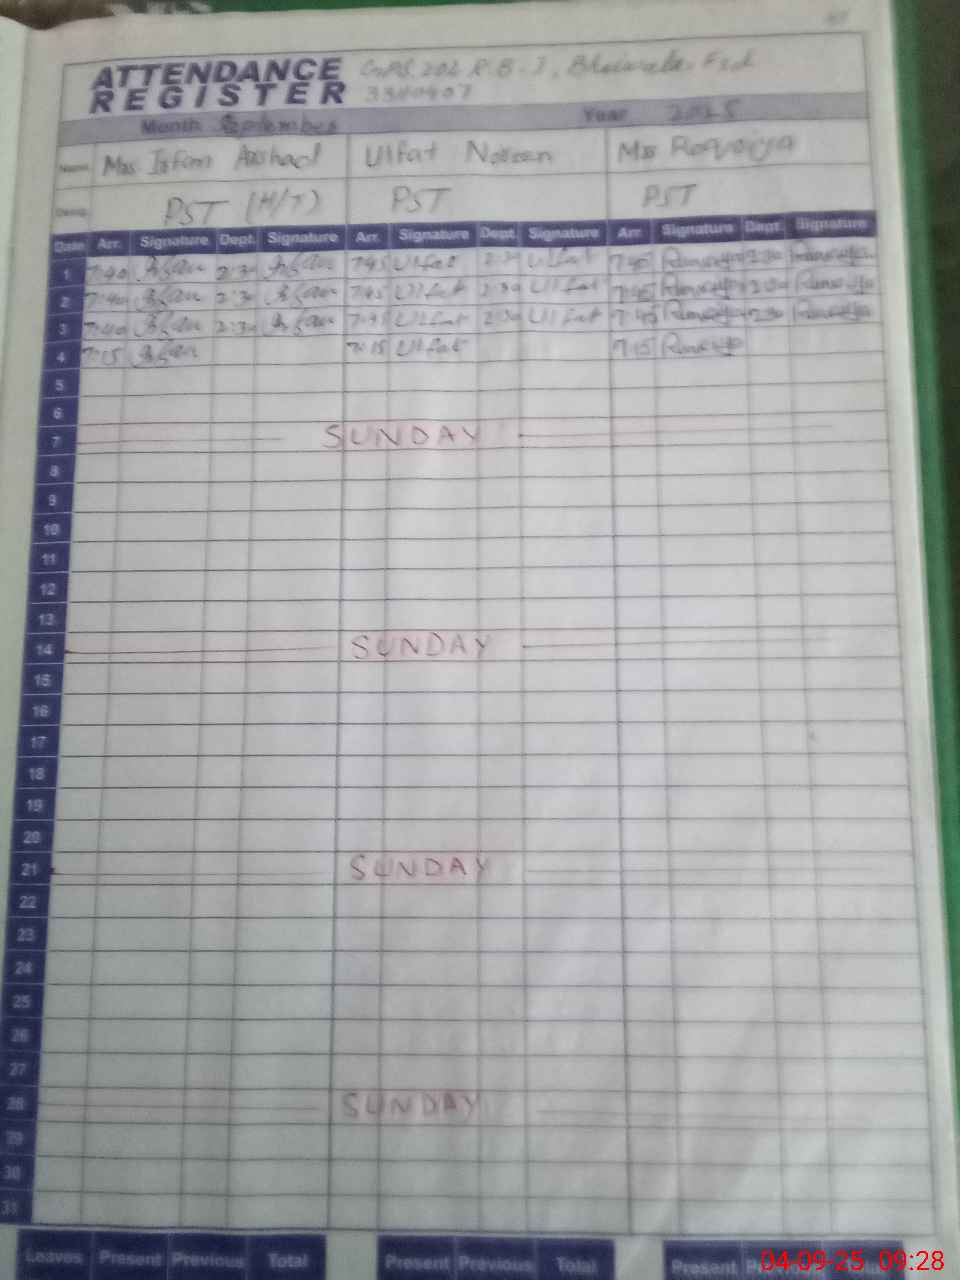 ATTENDANCE REGISTER
GPS. 202 R.B-I, Bhaiwala. Fsd
3340407
Month September Year 2025
Name Mrs Irfam Arshad Ulfat Noreen Mrs Roqaiya
Desig. PST (H/T) PST PST
Date Arr. Signature Dept. Signature Arr. Signature Dept. Signature Arr. Signature Dept. Signature
1 7:40 2:30 7:45 Ulfat 2:30 Ulfat 7:45 2:30
2 7:40 2:30 7:45 Ulfat 2:30 Ulfat 7:45 2:30
3 7:40 2:30 7:35 Ulfat 2:30 Ulfat 7:45 2:30
4 7:15 7:15 Ulfat 7:15
5
6
7 SUNDAY
8
9
10
11
12
13
14 SUNDAY
15
16
17
18
19
20
21 SUNDAY
22
23
24
25
26
27
28 SUNDAY
29
30
31
Leaves Present Previous Total Present Previous Total Present
04-09-25 09:28